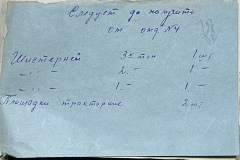 Следует до получить
от отд №4
Шистерней 3х тон 1 шт
— " — 2. — 1 —
— " — 1. — 1 —
Площадки тракторные 2 шт.